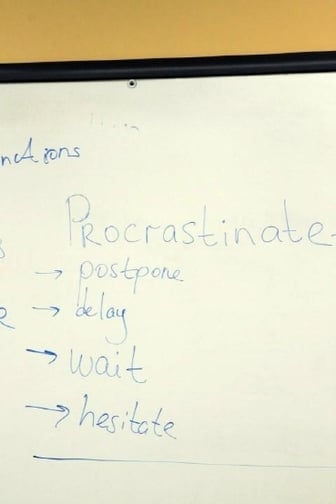 Procrastinate
→ postpone
→ delay
→ wait
→ hesitate